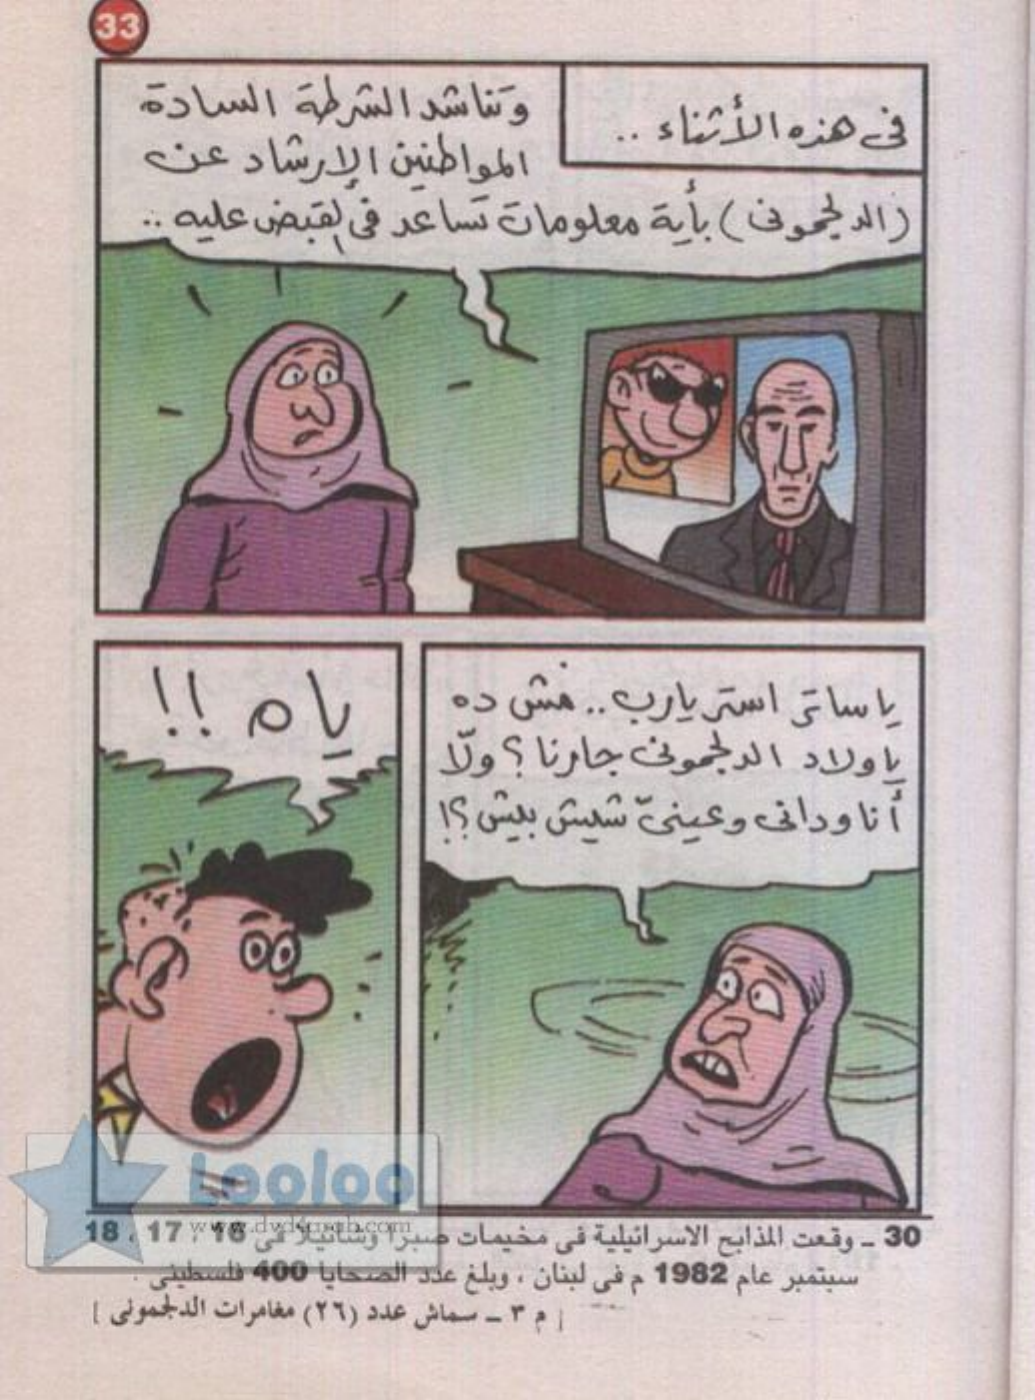 33
فى هذه الأثناء ..
وتناشد الشرطة السادة
المواطنين الإرشاد عن
(الدلجمونى) بأية معلومات تساعد فى القبض عليه ..
ياساتر استر يارب.. مش ده
ياولاد الدلجمونى جارنا؟ ولّا
أنا ودانى وعينىّ شيش بيش؟!
ياه !!
Looloo
www.dvd4arab.com
30 ـ وقعت المذابح الاسرائيلية فى مخيمات صبرا وشاتيلا فى 16 ، 17 ، 18
سبتمبر عام 1982 م فى لبنان ، وبلغ عدد الضحايا 400 فلسطينى .
[ م ٣ ـ سماش عدد (٢٦) مغامرات الدلجمونى ]